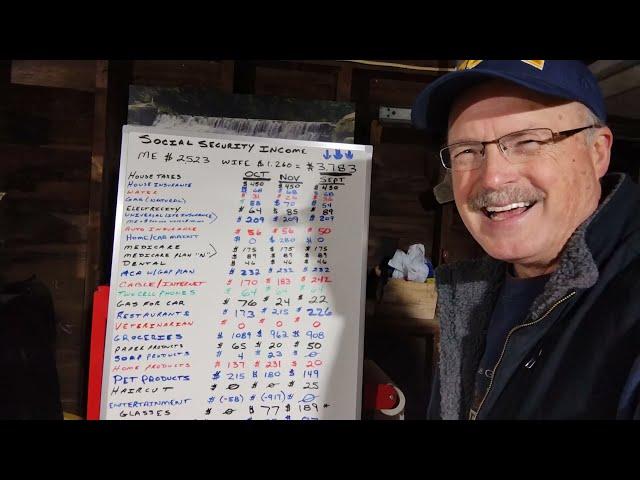 SOCIAL SECURITY INCOME
ME $2523 WIFE $1,260 = $3,783
OCT NOV SEPT
HOUSE TAXES $450 $450 $450
HOUSE INSURANCE $68 $68 $68
WATER $31 $26 $36
GAS (NATURAL) $88 $70
ELECTRICITY $64 $85 $89
UNIVERSAL LIFE INSURANCE $209 $209 $209
AUTO INSURANCE $56 $56 $50
HOME/CAR MAINT $0 $280 $0
MEDICARE $175 $175 $175
MEDICARE PLAN "N" $89 $89 $89
DENTAL $46 $46 $46
ACA W/GAP PLAN $232 $232 $232
CABLE/INTERNET $170 $183 $242
TWO CELL PHONES $64 $64 $64
GAS FOR CAR $76 $24 $22
RESTAURANTS $173 $215 $226
VETERINARIAN $0 0 0
GROCERIES $1089 $962 $908
PAPER PRODUCTS $65 $20 $50
SOAP PRODUCTS $4 $23 $0
HOME PRODUCTS $137 $231 $20
PET PRODUCTS $215 $180 $149
HAIRCUT $0 $0 $25
ENTERTAINMENT $(-58) $(-917) $0
GLASSES $0 $77 $189 *